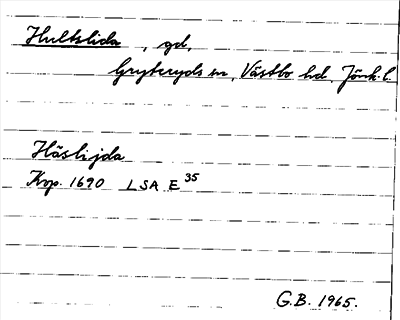 Hultslida , gd,
Gryteryds sn, Västbo hd, Jönk. l.
Häslijda
Kop. 1690 LSA E 35
G.B. 1965.